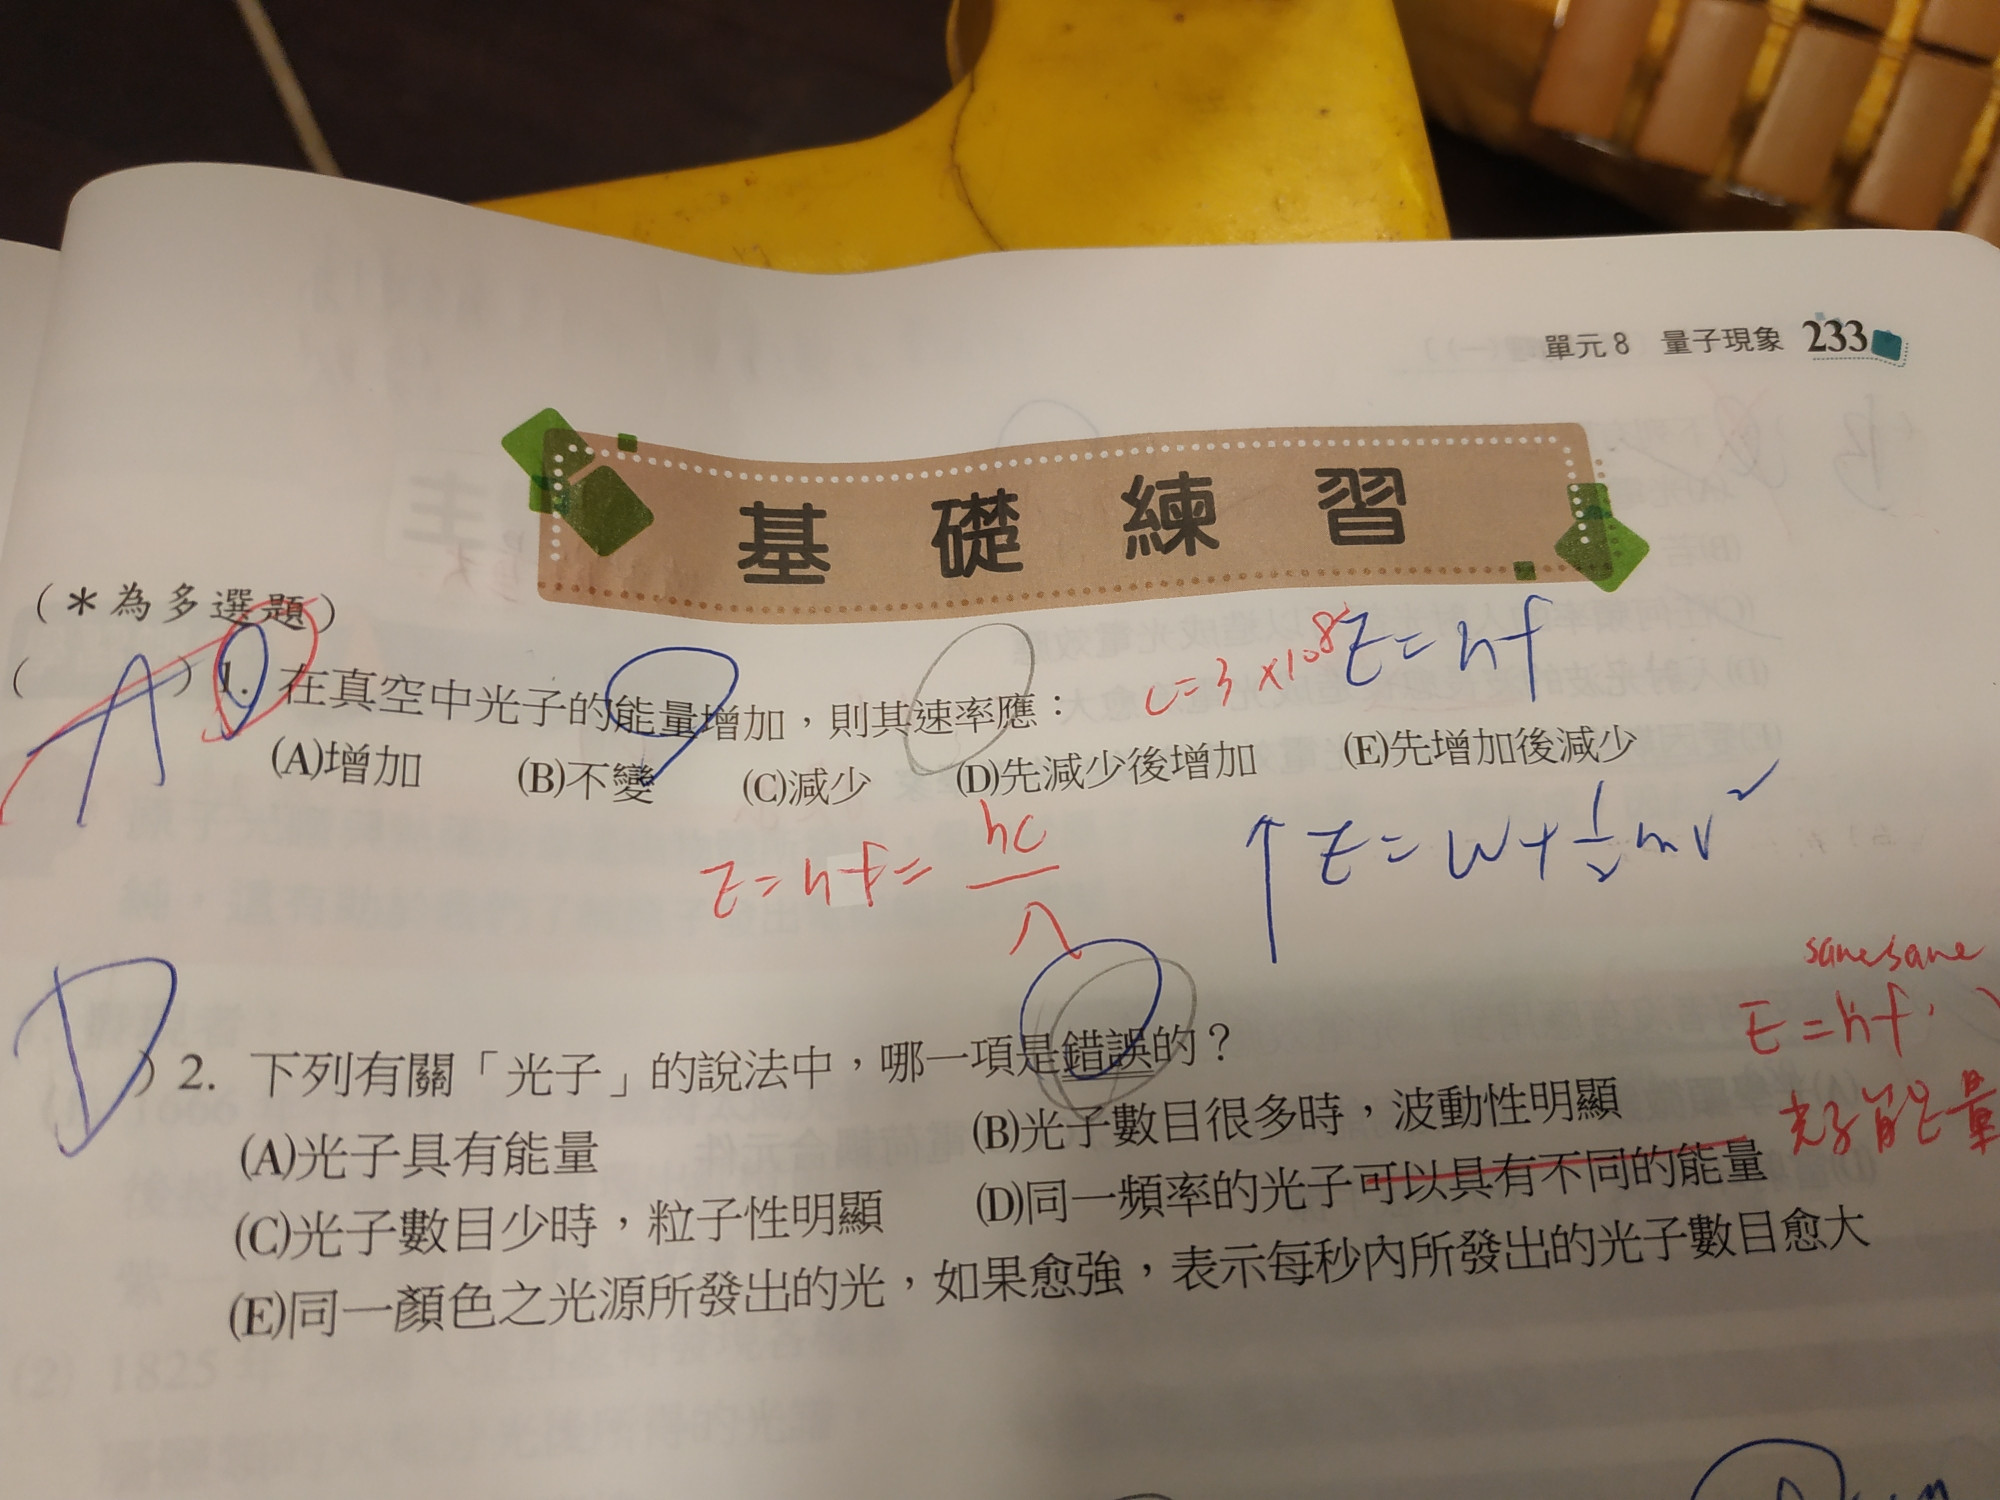 單元8 量子現象 233
基礎練習
(＊為多選題)
c=3×10⁸ E=hf
( A ) 1. 在真空中光子的能量增加，則其速率應：
(A)增加 (B)不變 (C)減少 (D)先減少後增加 (E)先增加後減少
E=hf=hc/λ
↑E=W+½mv²
same same
E=hf
光子能量
D ) 2. 下列有關「光子」的說法中，哪一項是錯誤的？
(A)光子具有能量 (B)光子數目很多時，波動性明顯
(C)光子數目少時，粒子性明顯 (D)同一頻率的光子可以具有不同的能量
(E)同一顏色之光源所發出的光，如果愈強，表示每秒內所發出的光子數目愈大